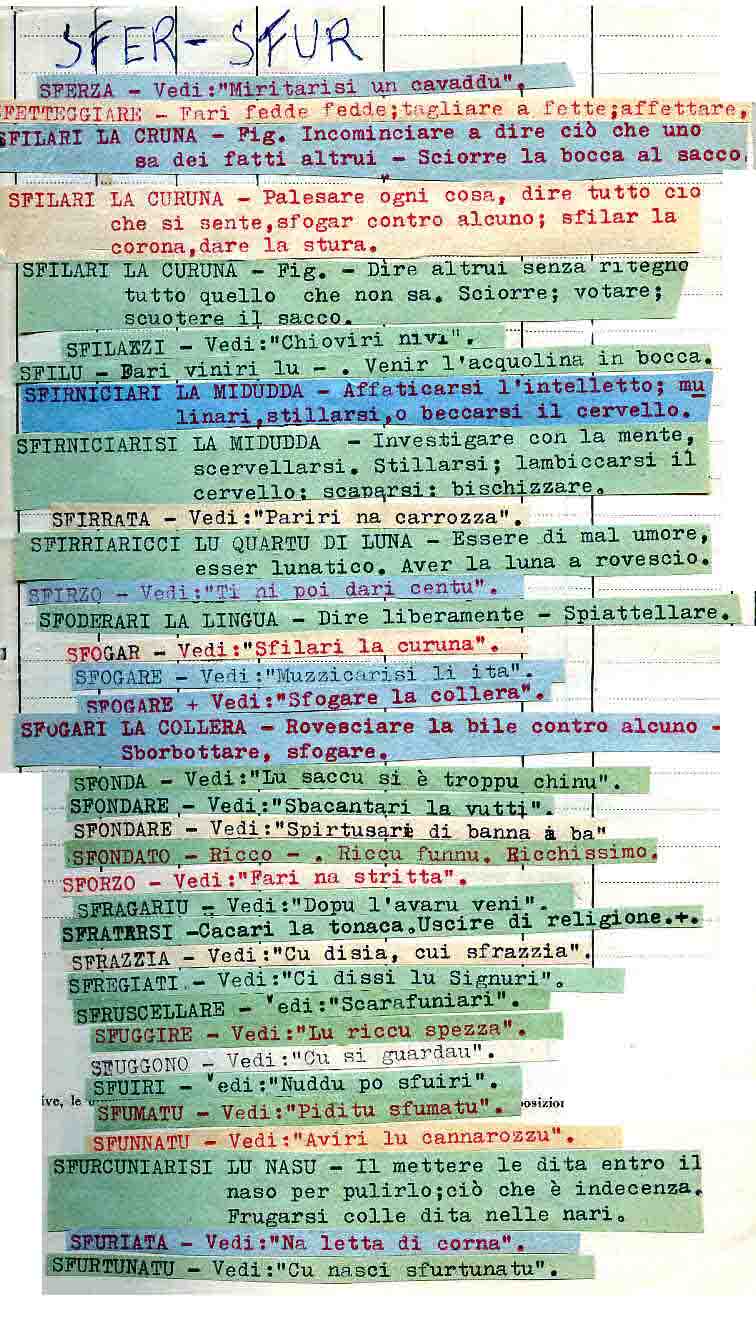 SFER-SFUR
SFERZA - Vedi:"Miritarisi un cavaddu",
FETTEGGIARE - Fari fedde fedde;tagliare a fette;affettare,
SFILARI LA CRUNA - Fig. Incominciare a dire ciò che uno
sa dei fatti altrui - Sciorre la bocca al sacco.
SFILARI LA CURUNA - Palesare ogni cosa, dire tutto ciò
che si sente,sfogar contro alcuno; sfilar la
corona,dare la stura.
SFILARI LA CURUNA - Fig. - Dire altrui senza ritegno
tutto quello che non sa. Sciorre; votare;
scuotere il sacco.
SFILAZZI - Vedi:"Chioviri nivi".
SFILU - Fari viniri lu - . Venir l'acquolina in bocca.
SFIRNICIARI LA MIDUDDA - Affaticarsi l'intelletto; mu
linari,stillarsi,o beccarsi il cervello.
SFIRNICIARISI LA MIDUDDA - Investigare con la mente,
scervellarsi. Stillarsi; lambiccarsi il
cervello; scaparsi; bischizzare.
SFIRRATA - Vedi:"Pariri na carrozza".
SFIRRIARICCI LU QUARTU DI LUNA - Essere di mal umore,
esser lunatico. Aver la luna a rovescio.
SFIRZO - Vedi:"Ti ni poi dari centu".
SFODERARI LA LINGUA - Dire liberamente - Spiattellare.
SFOGAR - Vedi:"Sfilari la curuna".
SFOGARE - Vedi:"Muzzicarisi li ita".
SFOGARE + Vedi:"Sfogare la collera".
SFOGARI LA COLLERA - Rovesciare la bile contro alcuno -
Sborbottare, sfogare.
SFONDA - Vedi:"Lu saccu si è troppu chinu".
SFONDARE - Vedi:"Sbacantari la vutti".
SFONDARE - Vedi:"Spirtusari di banna a ba"
SFONDATO - Ricco - . Riccu funnu. Ricchissimo.
SFORZO - Vedi:"Fari na stritta".
SFRAGARIU - Vedi:"Dopu l'avaru veni".
SFRATARSI -Cacari la tonaca.Uscire di religione.+.
SFRAZZIA - Vedi:"Cu disia, cui sfrazzia".
SFREGIATI - Vedi:"Ci dissi lu Signuri".
SFRUSCELLARE - Vedi:"Scarafuniari".
SFUGGIRE - Vedi:"Lu riccu spezza".
SFUGGONO - Vedi:"Cu si guardau".
SFUIRI - Vedi:"Nuddu po sfuiri".
ive, le
posizioi
SFUMATU - Vedi:"Piditu sfumatu".
SFUNNATU - Vedi:"Aviri lu cannarozzu".
SFURCUNIARISI LU NASU - Il mettere le dita entro il
naso per pulirlo;ciò che è indecenza.
Frugarsi colle dita nelle nari.
SFURIATA - Vedi:"Na letta di corna".
SFURTUNATU - Vedi:"Cu nasci sfurtunatu".